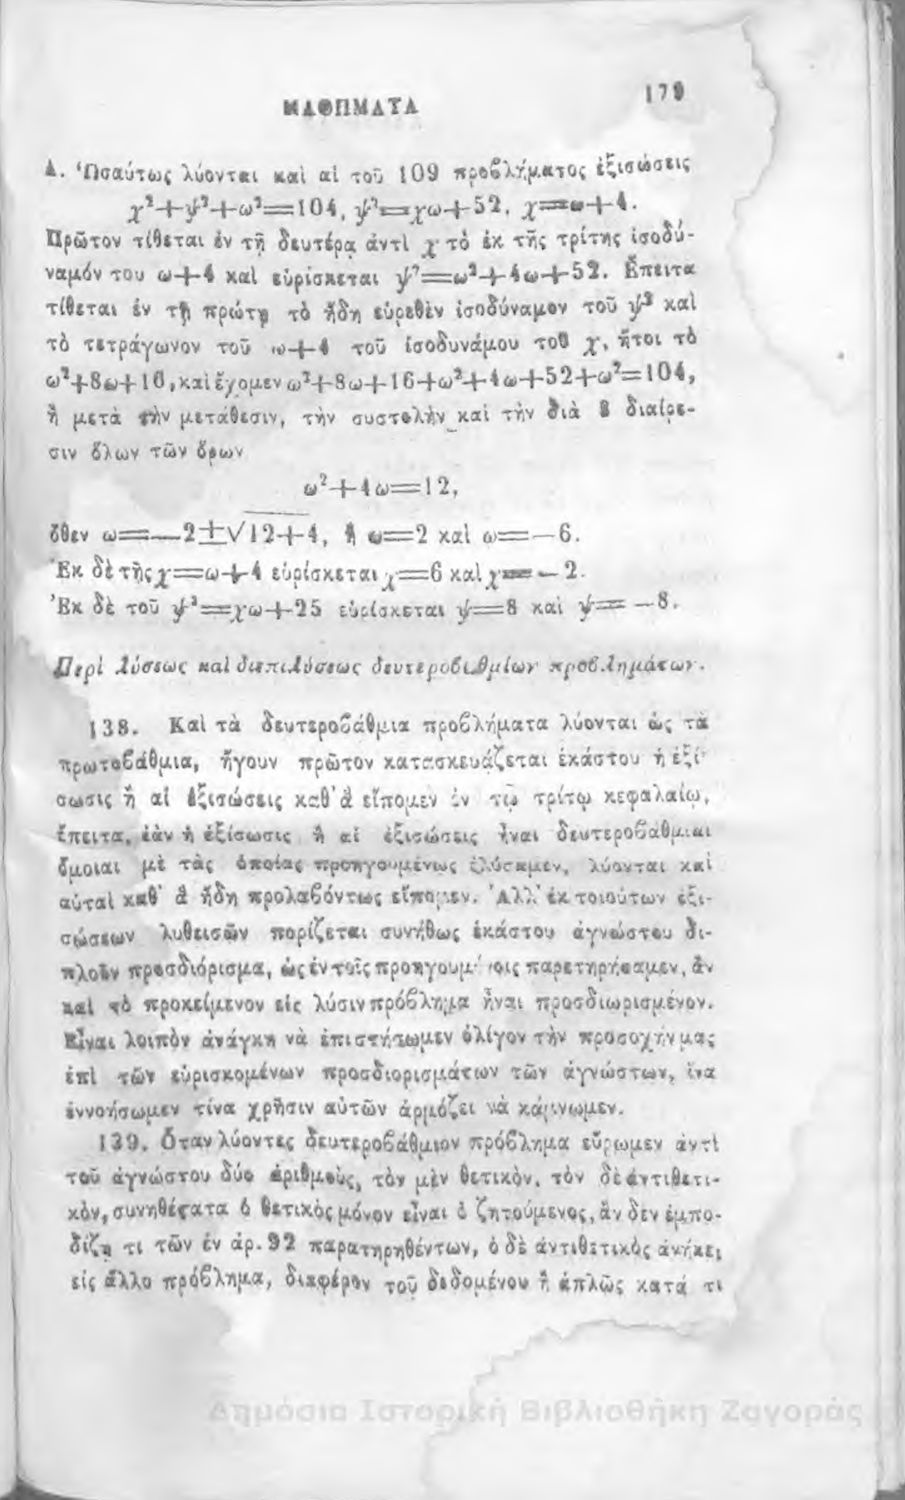 ΜΑΘΗΜΑΤΑ 179
Δ. Ὡσαύτως λύονται καὶ αἱ τοῦ 109 προβλήματος ἐξισώσεις
χ²+ψ²+ω²=104, ψ²=χω+52, χ=ω+4.
Πρῶτον τίθεται ἐν τῇ δευτέρᾳ ἀντὶ χ τὸ ἐκ τῆς τρίτης ἰσοδύ-
ναμόν του ω+4 καὶ εὑρίσκεται ψ²=ω²+4ω+52. Ἔπειτα
τίθεται ἐν τῇ πρώτῃ τὸ ἤδη εὑρεθὲν ἰσοδύναμον τοῦ ψ² καὶ
τὸ τετράγωνον τοῦ ω+4 τοῦ ἰσοδυνάμου τοῦ χ, ἤτοι τὸ
ω²+8ω+16, καὶ ἔχομεν ω²+8ω+16+ω²+4ω+52+ω²=104,
ἢ μετὰ τὴν μετάθεσιν, τὴν συστολὴν καὶ τὴν διὰ 3 διαίρε-
σιν ὅλων τῶν ὅρων
ω²+4ω=12,
ὅθεν ω=—2±√12+4, ἢ ω=2 καὶ ω=—6.
Ἐκ δὲ τῆς χ=ω+4 εὑρίσκεται χ=6 καὶ χ=—2.
Ἐκ δὲ τοῦ ψ²=χω+25 εὑρίσκεται ψ=8 καὶ ψ=—8.
Περὶ λύσεως καὶ διεπιλύσεως δευτεροβαθμίων προβλημάτων.
138. Καὶ τὰ δευτεροβάθμια προβλήματα λύονται ὡς τὰ
πρωτοβάθμια, ἤγουν πρῶτον κατασκευάζεται ἑκάστου ἡ ἐξί-
σωσις ἢ αἱ ἐξισώσεις καθ' ἃ εἴπομεν ἐν τῷ τρίτῳ κεφαλαίῳ,
ἔπειτα, ἐὰν ἡ ἐξίσωσις ἢ αἱ ἐξισώσεις ἦναι δευτεροβάθμιαι
ὅμοιαι μὲ τὰς ὁποίας προηγουμένως ἐλύσαμεν, λύονται καὶ
αὐταὶ καθ' ἃ ἤδη προλαβόντως εἴπομεν. Ἀλλ' ἐκ τοιούτων ἐξι-
σώσεων λυθεισῶν πορίζεται συνήθως ἑκάστου ἀγνώστου δι-
πλοῦν προσδιόρισμα, ὡς ἐν τοῖς προηγουμένοις παρετηρήσαμεν, ἂν
καὶ τὸ προκείμενον εἰς λύσιν πρόβλημα ἦναι προσδιωρισμένον.
Εἶναι λοιπὸν ἀνάγκη νὰ ἐπιστήσωμεν ὀλίγον τὴν προσοχήν μας
ἐπὶ τῶν εὑρισκομένων προσδιορισμάτων τῶν ἀγνώστων, ἵνα
ἐννοήσωμεν τίνα χρῆσιν αὐτῶν ἁρμόζει νὰ κάμνωμεν.
139. Ὅταν λύοντες δευτεροβάθμιον πρόβλημα εὕρωμεν ἀντὶ
τοῦ ἀγνώστου δύο ἀριθμοὺς, τὸν μὲν θετικὸν, τὸν δὲ ἀντιθετι-
κὸν, συνηθέστατα ὁ θετικὸς μόνον εἶναι ὁ ζητούμενος, ἂν δεν ἐμπο-
δίζῃ τι τῶν ἐν ἀρ. 92 παρατηρηθέντων, ὁ δὲ ἀντιθετικὸς ἀνήκει
εἰς ἄλλο πρόβλημα, διαφέρον τοῦ δεδομένου ἢ ἁπλῶς κατά τι
Δημόσια Ιστορική Βιβλιοθήκη Ζαγοράς